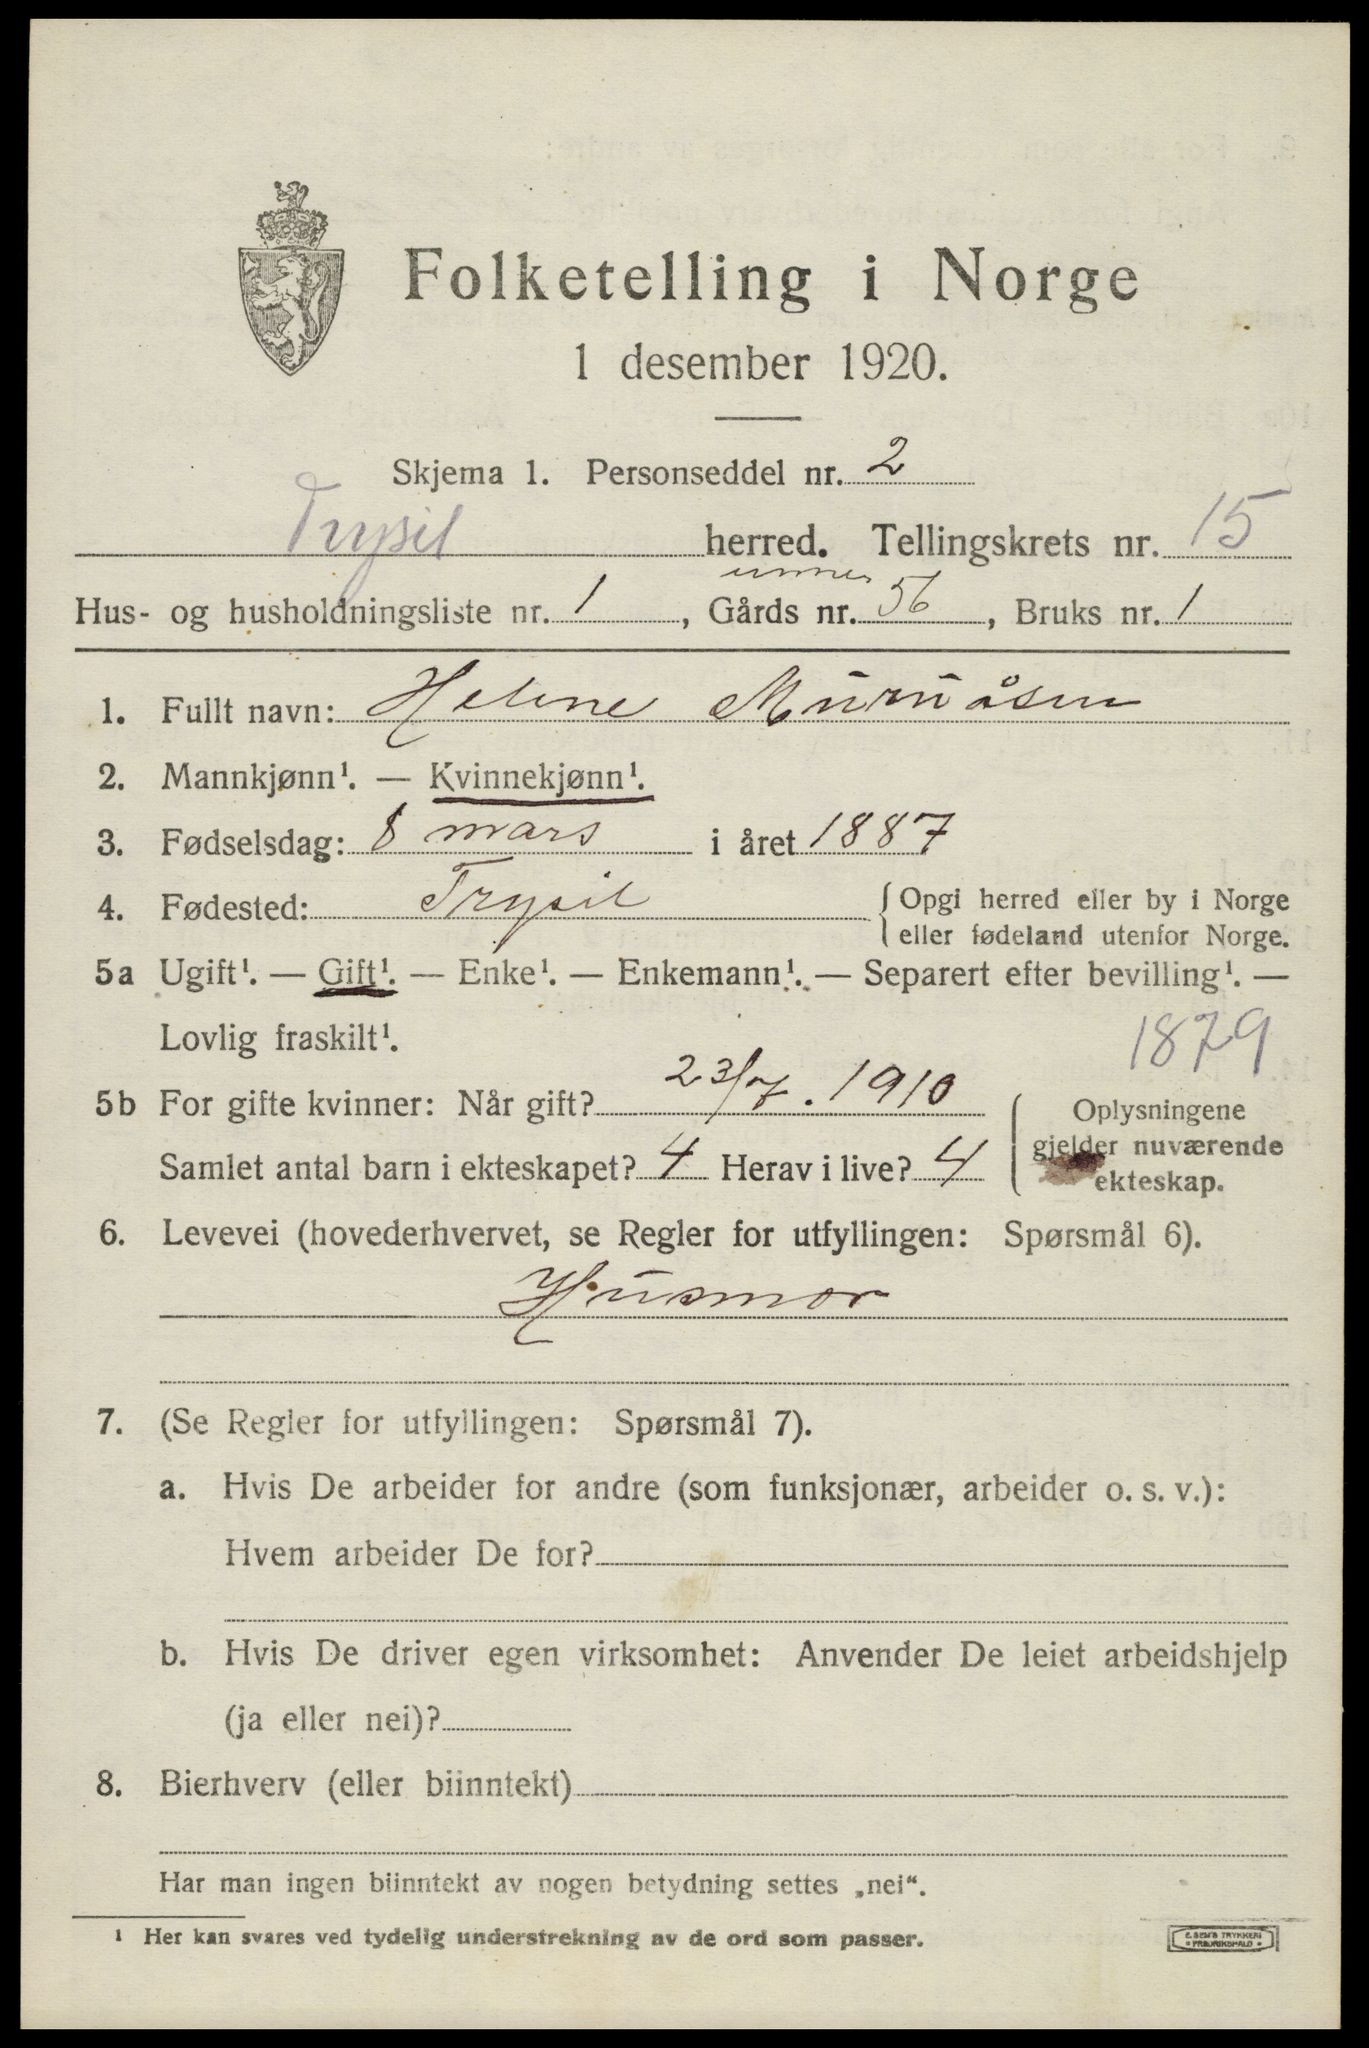 Folketelling i Norge
1 desember 1920.
Skjema 1. Personseddel nr. 2
Trysil herred. Tellingskrets nr. 15
Hus- og husholdningsliste nr. 1, Gårds nr. 56, Bruks nr. 1
1. Fullt navn: Helene Muruåsen
2. Mannkjønn¹. — Kvinnekjønn¹.
3. Fødselsdag: 8 mars i året 1887
4. Fødested: Trysil {Opgi herred eller by i Norge
eller fødeland utenfor Norge.
5a Ugift¹. — Gift¹. — Enke¹. — Enkemann¹. — Separert efter bevilling¹. —
Lovlig fraskilt¹. 1879
5b For gifte kvinner: Når gift? 23/7. 1910 Oplysningene
Samlet antal barn i ekteskapet? 4 Herav i live? 4 gjelder nuværende
ekteskap.
6. Levevei (hovederhvervet, se Regler for utfyllingen: Spørsmål 6).
Husmor
7. (Se Regler for utfyllingen: Spørsmål 7).
a. Hvis De arbeider for andre (som funksjonær, arbeider o. s. v.):
Hvem arbeider De for?
b. Hvis De driver egen virksomhet: Anvender De leiet arbeidshjelp
(ja eller nei)?
8. Bierhverv (eller biinntekt)
Har man ingen biinntekt av nogen betydning settes „nei“.
¹ Her kan svares ved tydelig understrekning av de ord som passer.
E. SEM'S TRYKKERI
• FREDRIKSHALD •